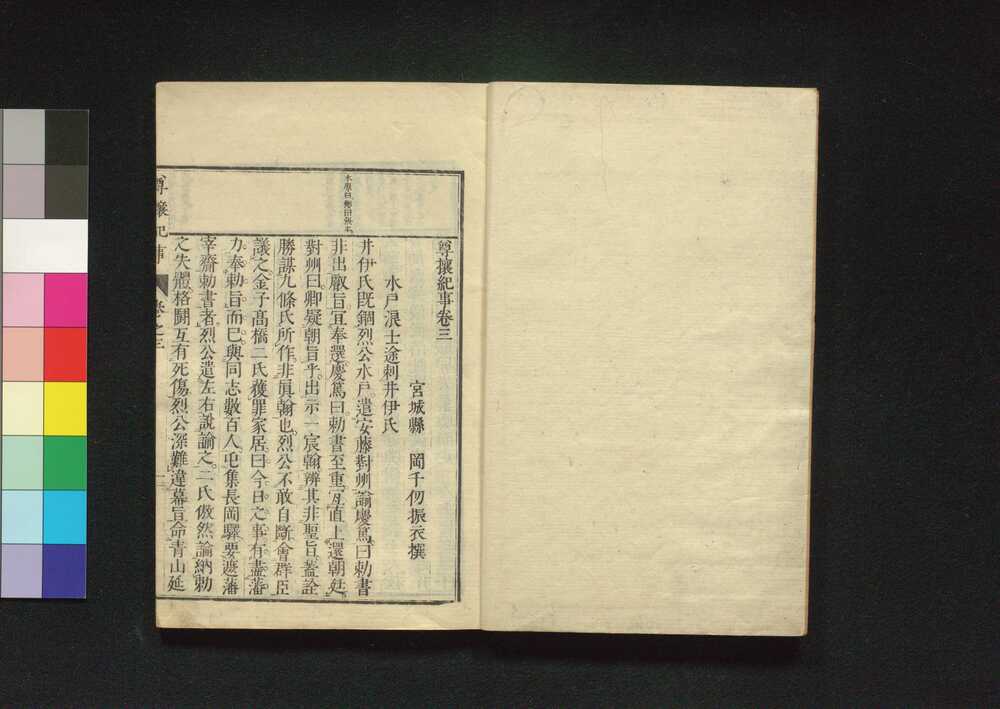 尊攘紀事卷三
宮城縣 岡千仞振衣撰
水戶浪士途刺井伊氏
井伊氏既錮烈公水戶。遣安藤對州諭慶篤。曰勅書
非出叡旨宜奉還慶篤曰勅書至重宜直上還朝廷
對州曰。卿疑朝旨乎。出示一宸翰辨其非聖旨蓋詮
勝謀九條氏所作。非眞翰也。烈公不敢自斷會群臣
議之。金子高橋二氏獲罪家居。曰今日之事。有盡藩
力。奉勅旨而已。與同志數百人。屯集長岡驛。要遮藩
宰齎勅書者。烈公遣左右說諭之。二氏傲然論納勅
之失體格鬪互有死傷。烈公深難違幕旨。命青山延
尊攘紀事
卷之三